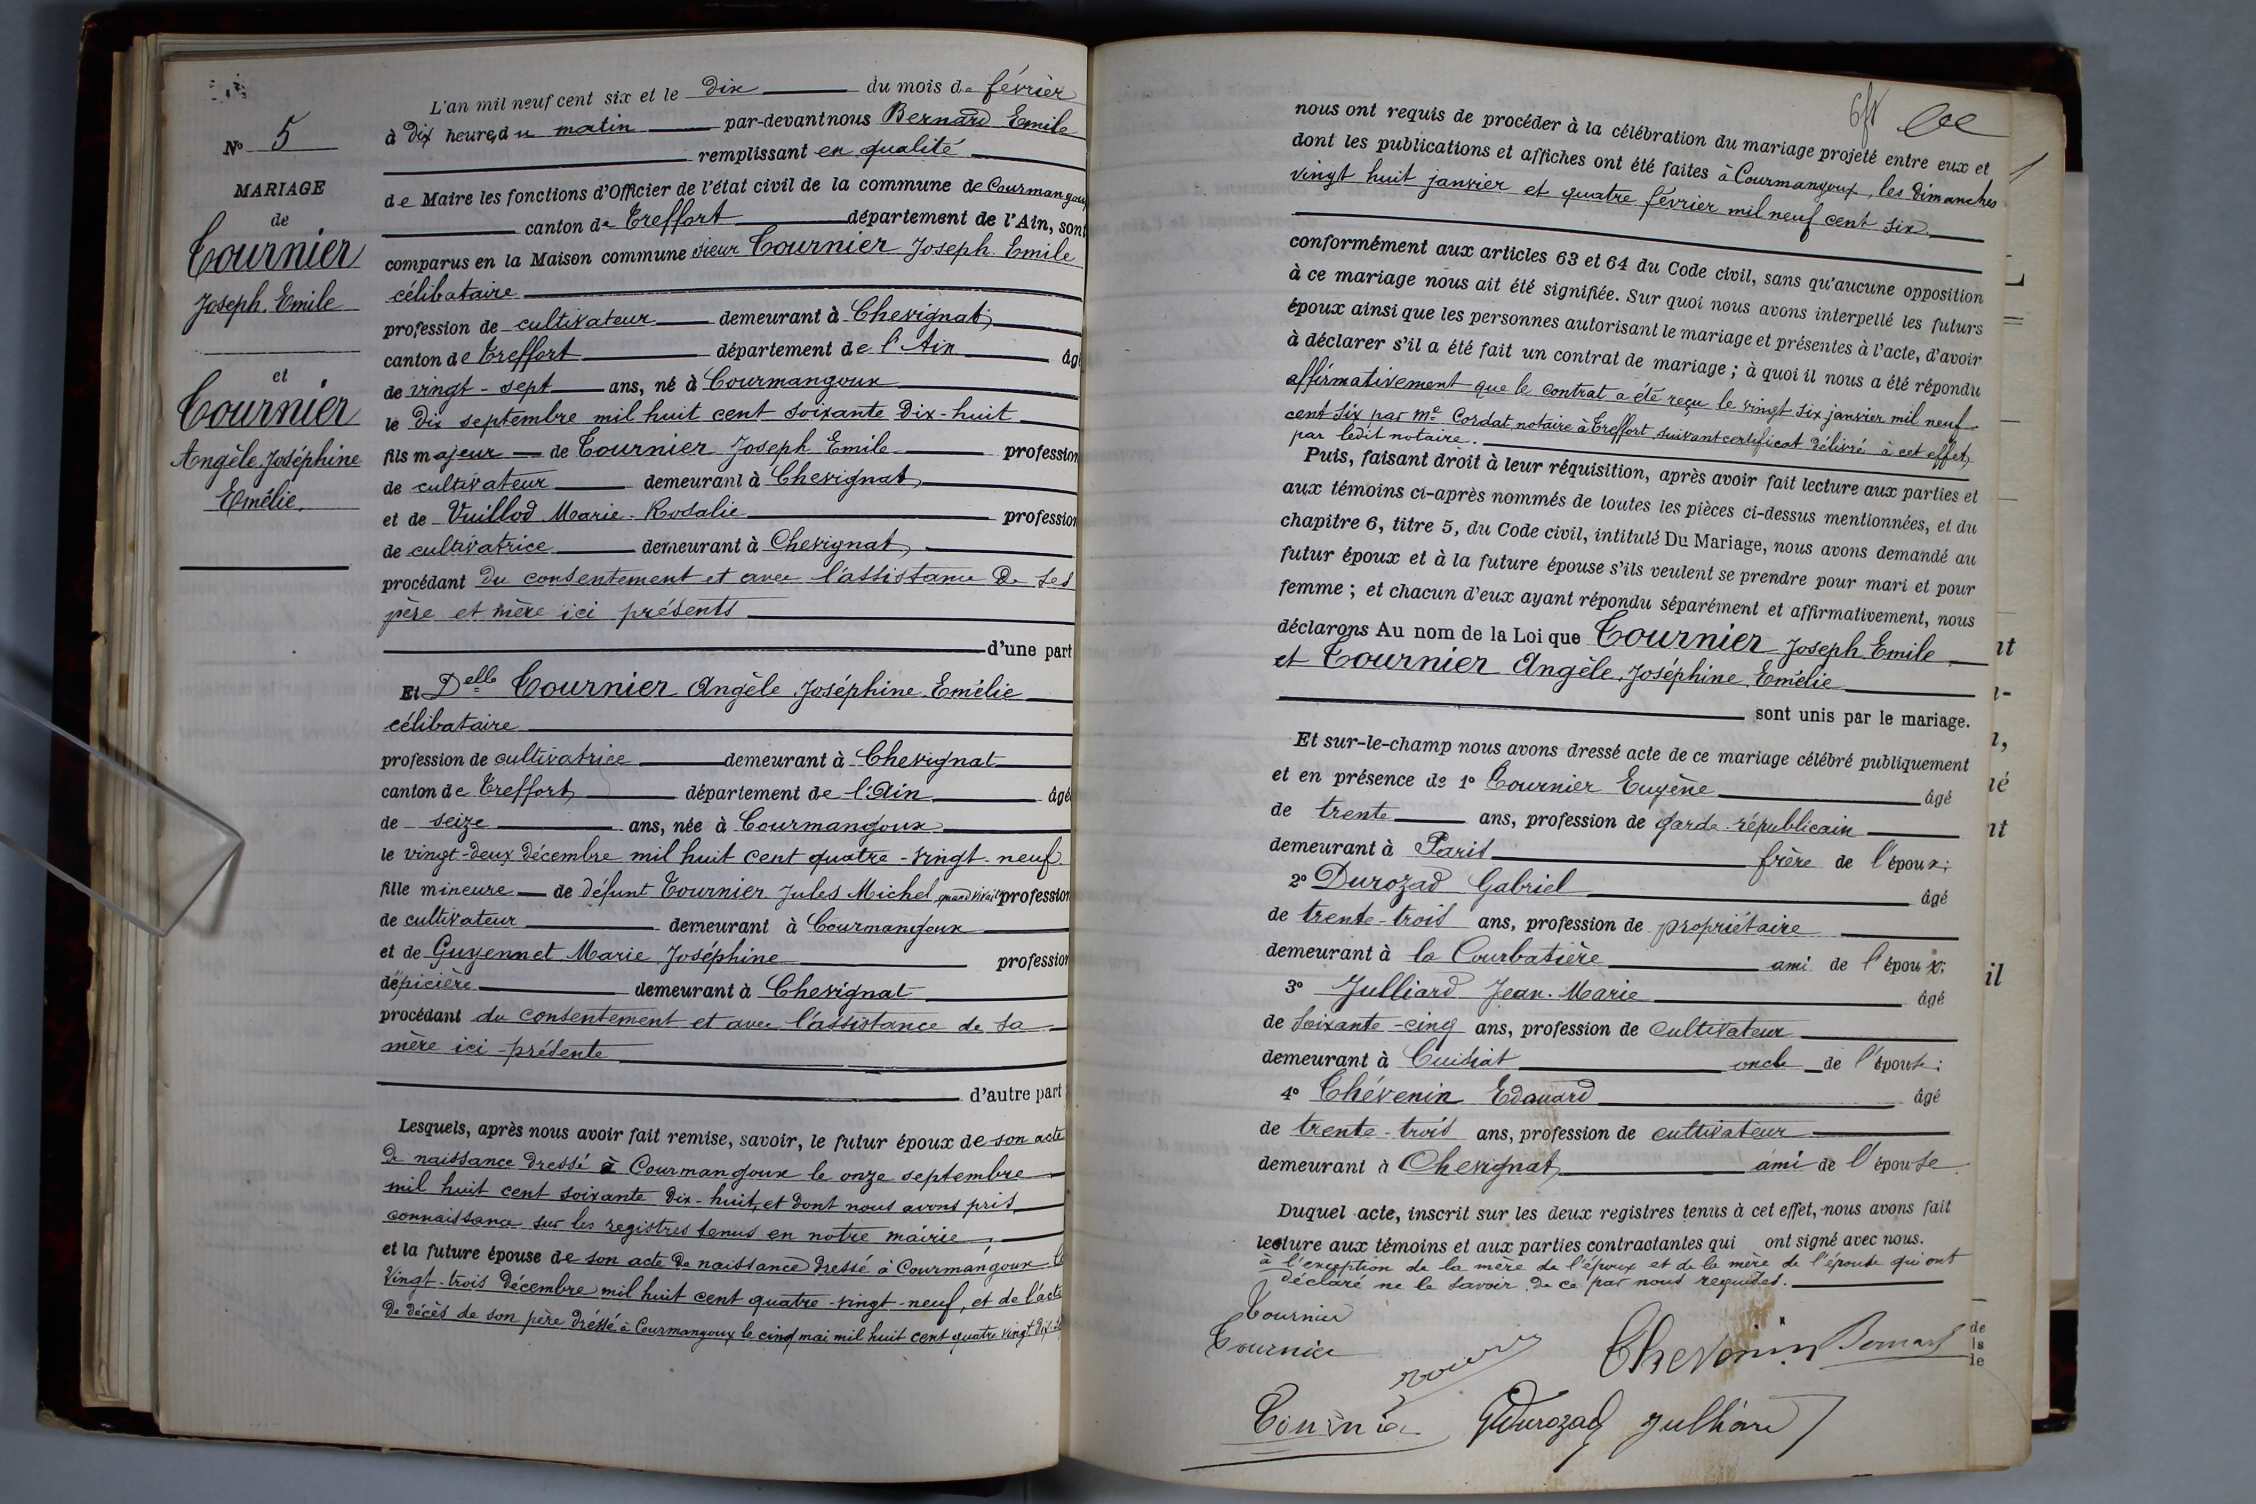 N° 5
MARIAGE
de
Tournier
Joseph Emile
et
Tournier
Angèle Joséphine
Emélie.
L'an mil neuf cent six et le dix du mois de février
à dix heures du matin par-devant nous Bernard Emile
remplissant en qualité
de Maire les fonctions d'Officier de l'état civil de la commune de Courmangoux
canton de Treffort département de l'Ain, sont
comparus en la Maison commune sieur Tournier Joseph Emile
célibataire
profession de cultivateur demeurant à Chevignat
canton de Treffort département de l'Ain âgé
de vingt-sept ans, né à Courmangoux
le dix septembre mil huit cent soixante dix-huit
fils majeur de Tournier Joseph Emile profession
de cultivateur demeurant à Chevignat
et de Vuillod Marie-Rosalie profession
de cultivatrice demeurant à Chevignat,
procédant du consentement et avec l'assistance de ses
père et mère ici présents
d'une part
Et Delle Tournier Angèle Joséphine Emélie
célibataire
profession de cultivatrice demeurant à Chevignat
canton de Treffort département de l'Ain âgée
de seize ans, née à Courmangoux
le vingt-deux décembre mil huit cent quatre-vingt-neuf
fille mineure de défunt Tournier Jules Michel quand vivait profession
de cultivateur demeurant à Courmangoux
et de Guyennet Marie Joséphine profession
d'épicière demeurant à Chevignat
procédant du consentement et avec l'assistance de sa
mère ici présente
d'autre part
Lesquels, après nous avoir fait remise, savoir, le futur époux de son acte
de naissance dressé à Courmangoux le onze septembre
mil huit cent soixante dix-huit, et dont nous avons pris
connaissance sur les registres tenus en notre mairie;
et la future épouse de son acte de naissance dressé à Courmangoux le
vingt-trois décembre mil huit cent quatre-vingt-neuf, et de l'acte
de décès de son père dressé à Courmangoux le cinq mai mil huit cent quatre vingt dix
nous ont requis de procéder à la célébration du mariage projeté entre eux et
dont les publications et affiches ont été faites à Courmangoux, les dimanches
vingt huit janvier et quatre février mil neuf cent six
conformément aux articles 63 et 64 du Code civil, sans qu'aucune opposition
à ce mariage nous ait été signifiée. Sur quoi nous avons interpellé les futurs
époux ainsi que les personnes autorisant le mariage et présentes à l'acte, d'avoir
à déclarer s'il a été fait un contrat de mariage ; à quoi il nous a été répondu
affirmativement que le contrat a été reçu le vingt six janvier mil neuf
cent six par Me Cordat notaire à Treffort suivant certificat délivré à cet effet,
par ledit notaire.
Puis, faisant droit à leur réquisition, après avoir fait lecture aux parties et
aux témoins ci-après nommés de toutes les pièces ci-dessus mentionnées, et du
chapitre 6, titre 5, du Code civil, intitulé Du Mariage, nous avons demandé au
futur époux et à la future épouse s'ils veulent se prendre pour mari et pour
femme ; et chacun d'eux ayant répondu séparément et affirmativement, nous
déclarons Au nom de la Loi que Tournier Joseph Emile
et Tournier Angèle Joséphine Emélie
sont unis par le mariage.
Et sur-le-champ nous avons dressé acte de ce mariage célébré publiquement
et en présence de 1° Tournier Eugène âgé
de trente ans, profession de garde républicain
demeurant à Paris frère de l'époux;
2° Durozad Gabriel âgé
de trente-trois ans, profession de propriétaire
demeurant à la Courbatière ami de l'époux;
3° Julliard Jean-Marie âgé
de soixante-cinq ans, profession de cultivateur
demeurant à Cuisiat oncle de l'épouse;
4° Thévenin Edouard âgé
de trente-trois ans, profession de cultivateur
demeurant à Chevignat ami de l'épouse
Duquel acte, inscrit sur les deux registres tenus à cet effet, nous avons fait
lecture aux témoins et aux parties contractantes qui ont signé avec nous.
à l'exception de la mère de l'époux et de la mère de l'épouse qui ont
déclaré ne le savoir de ce par nous requises.
Tournier
Tournier
Thevenin Bernard
Tournier GDurozad Julliard